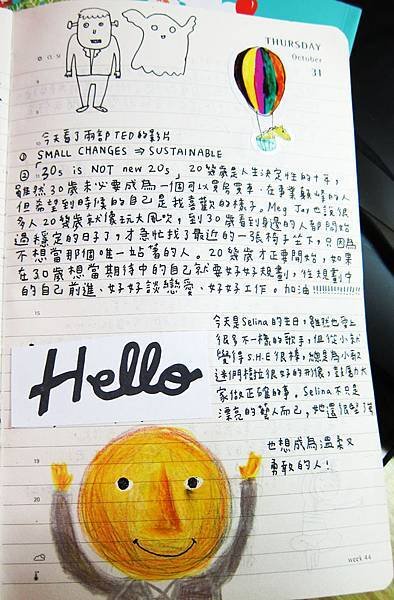 THURSDAY
October
31
今天看了兩部TED的影片
① SMALL CHANGES ⇒ SUSTAINABLE
②「30s is NOT new 20s」20幾歲是人生決定性的十年,
雖然30歲未必要成為一個可以買房買車、在事業顛峰的人
但希望到時候的自己是我喜歡的樣子。Meg Jay也說很
多人20幾歲就像玩大風吹,到30歲看到身邊的人都開始
過穩定的日子了,才急忙找了最近的一張椅子坐下,只因為
不想當那個唯一站著的人。20幾歲才正要開始,如果
在30歲想當期待中的自己就要好好規劃,往規劃中
的自己前進、好好談戀愛、好好工作。加油!!!!!!!!!!!!
今天是Selina的生日,雖然也愛上
很多不一樣的歌手,但從小就
覺得S.H.E很棒,總是為小歌
迷們樹立很好的形像,鼓勵大
家做正確的事。Selina不只是
漂亮的藝人而已,她還很堅強
也想成為溫柔又
勇敢的人!
Hello
week 44